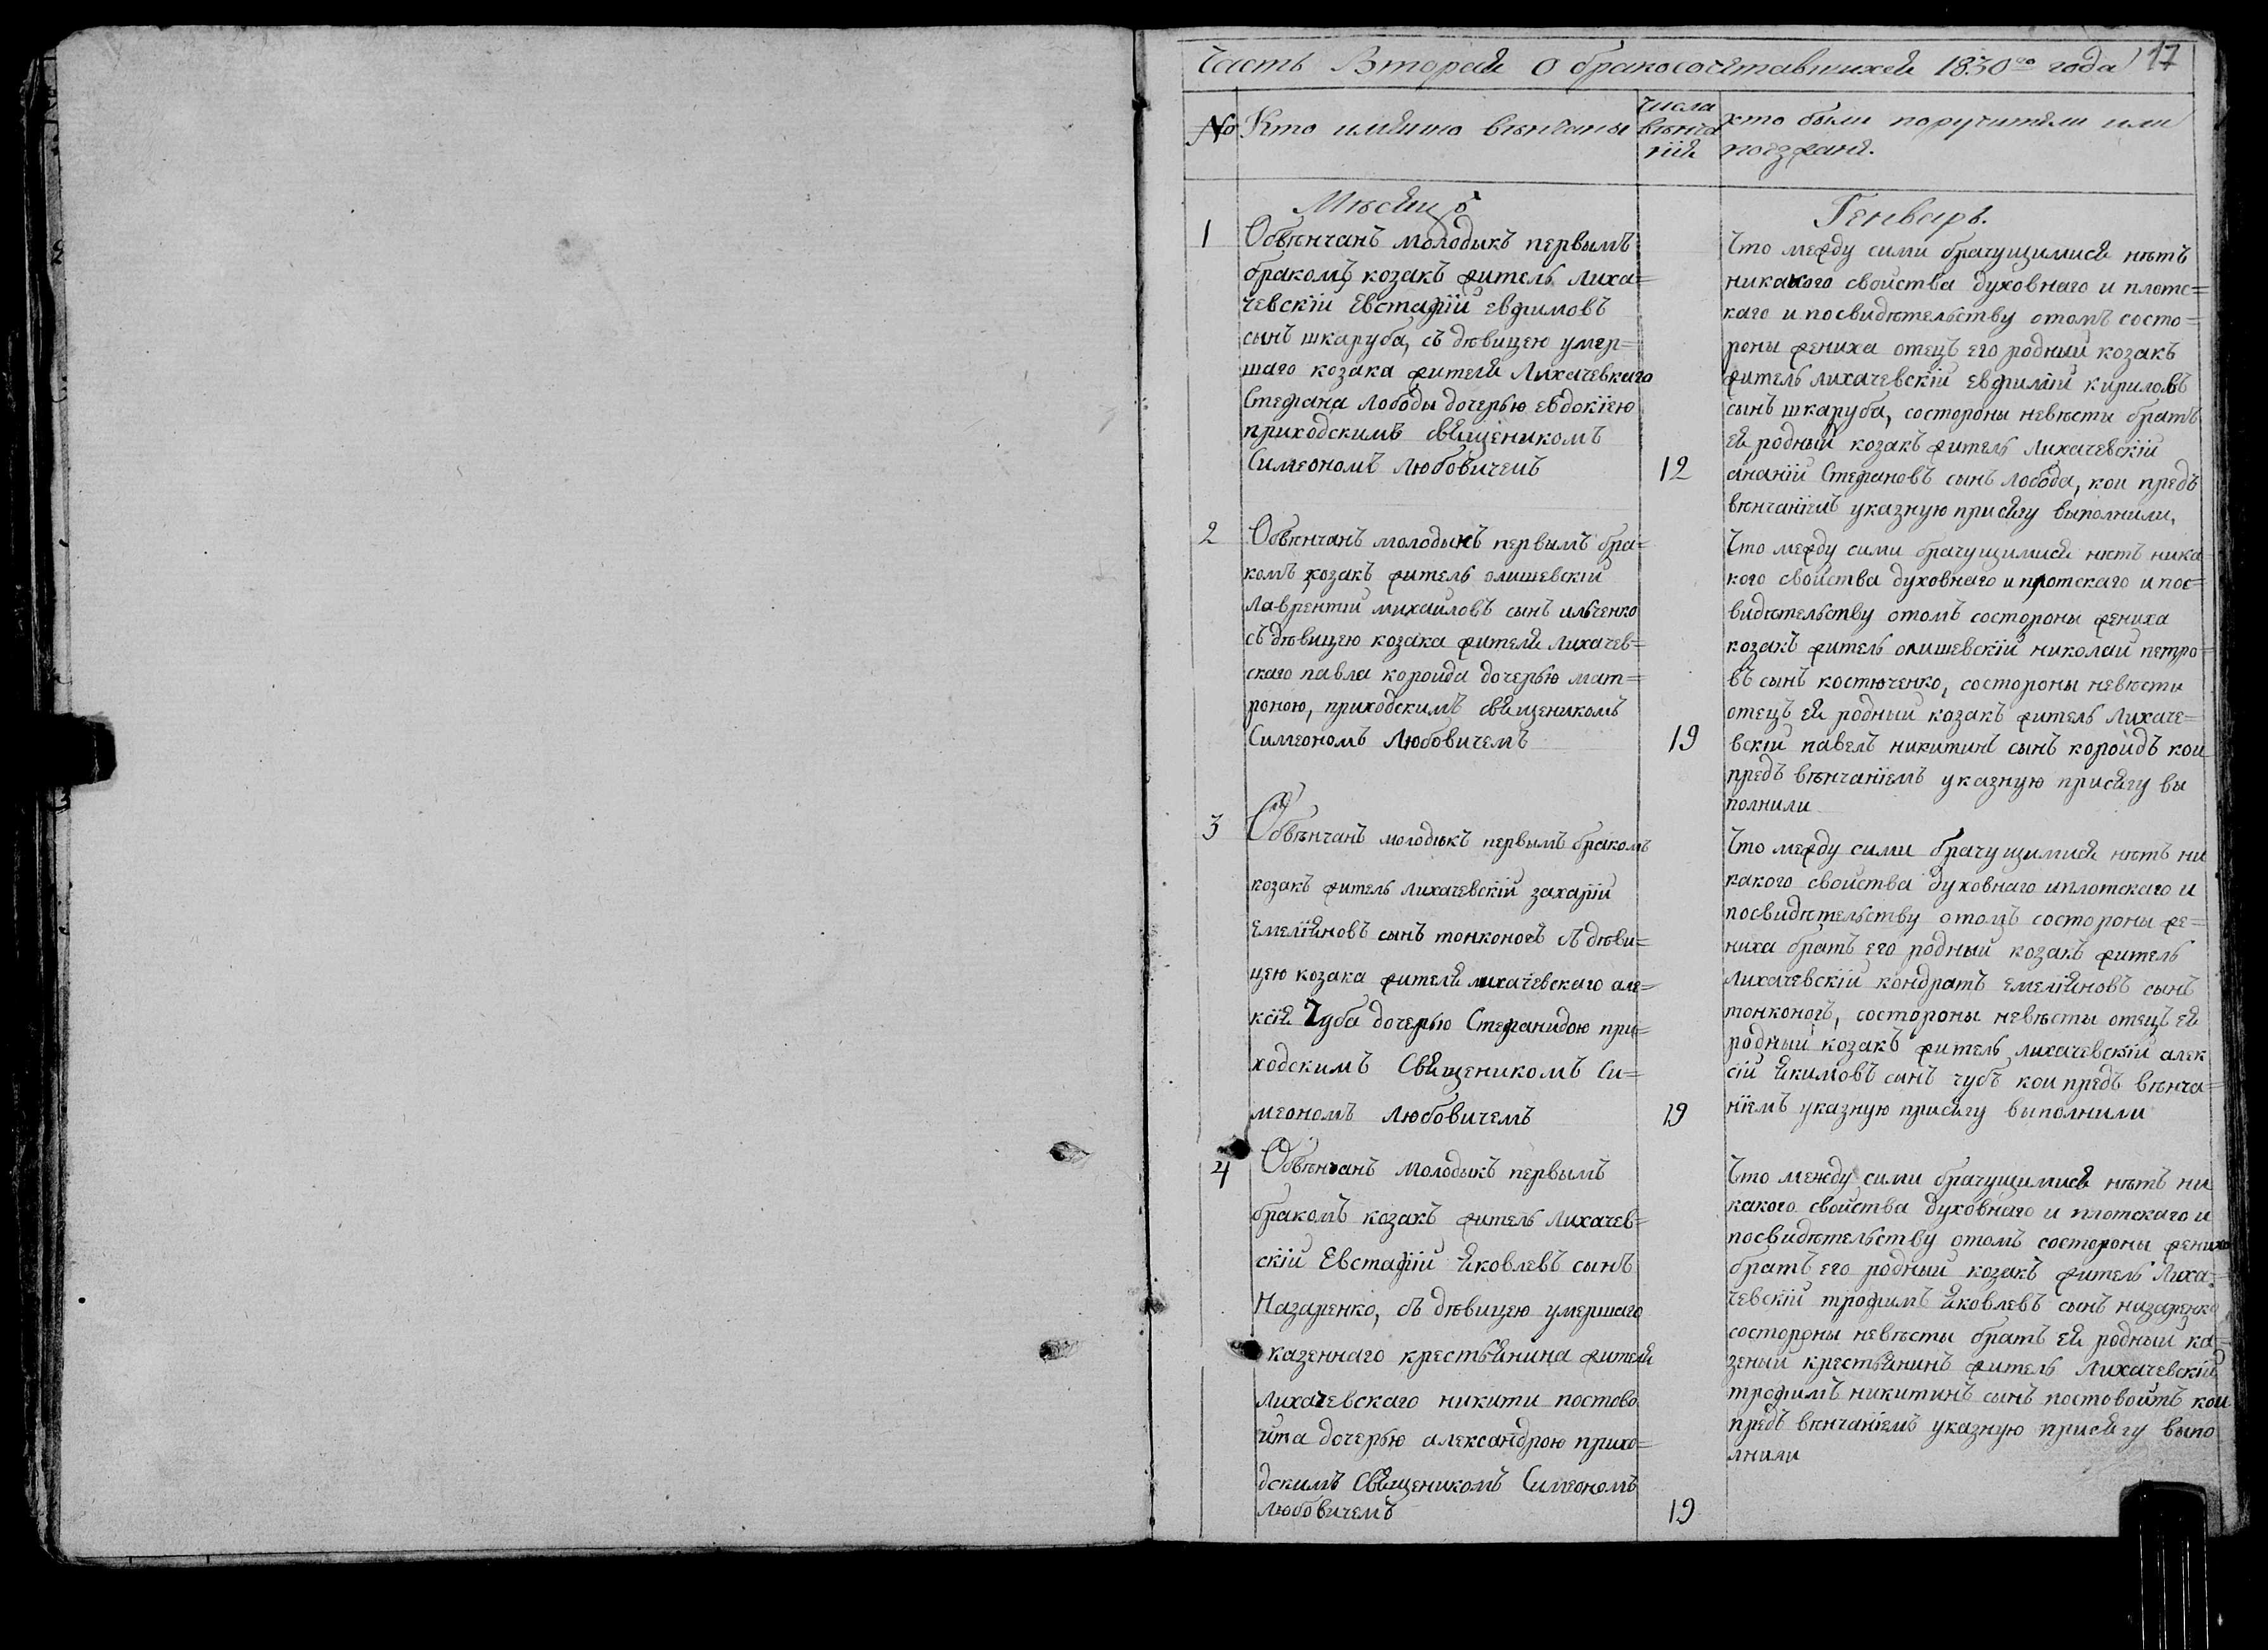 Часть Вторая о бракосочетавшихся 1830го года 17
№ Кто имянно венчаны
числа
венча
нія
кто были поручители или
поезжане.
Месяцъ
Генварь.
1
Обвенчанъ молодыкъ первымъ
бракомъ козакъ житель лиха=
чевскій Евстафій евфимовъ
сынъ шкаруба, съ девицею умер=
шаго козака жителя Лихачевкаго
Стефана Лободы дочерью евдокіею
приходскимъ священикомъ
Симеономъ Любовичемъ
12
Что между сими брачущимися нѣтъ
никакого свойства духовнаго и плотс=
каго и посвидѣтельству отомъ состо=
роны жениха отецъ его родный козакъ
житель лихачевскій евфимій кириловъ
сынъ шкаруба, состороны невѣсти братъ
ея родный козакъ житель Лихачевскій
ананій Стефановъ сынъ лобода, кои предъ
вѣнчаніемъ указную присягу выполнили,
2
Обвѣнчанъ молодыкъ первымъ бра=
комъ козакъ житель олишевскій
Лаврентій михаиловъ сынъ ильченко
съ дѣвицею козака жителя лихачев=
скаго павла короида дочерью мат=
роною, приходскимъ священикомъ
Симеономъ Любовичемъ
19
Что между сими брачущимися нѣтъ ника
кого свойства духовнаго и плотскаго и пос=
видѣтельству отомъ состороны жениха
козакъ житель олишевскій николай петро=
въ сынъ костюченко, состороны невѣсти
отецъ ея родный козакъ житель Лихаче=
вскій павелъ никитинъ сынъ короидъ кои
предъ вѣнчаніемъ указную присягу вы
полнили
3
Обвѣнчанъ молодыкъ первымъ бракомъ
козакъ житель лихачевскій захарій
емеліяновъ сынъ тонконогъ съ дѣви=
цею козака жителя лихачевскаго але=
ксія Чуба дочерью Стефанидою при=
ходскимъ Священикомъ Си=
меономъ Любовичемъ
19
Что между сими брачущимися нѣтъ ни
какого свойства духовнаго иплотскаго и
посвидѣтельству отомъ состороны же=
ниха братъ его родный козакъ житель
лихачевскій кондратъ емеліяновъ сынъ
тонконогъ, состороны невѣсты отецъ ея
родный козакъ житель лихачевскій алек
сій якимовъ сынъ чубъ кои предъ вѣнча=
ніемъ указную присягу выполнили
4
Обвѣнчанъ молодыкъ первымъ
бракомъ козакъ житель Лихачев=
скій Евстафій яковлевъ сынъ
Назаренко, съ дѣвицею умершаго
казеннаго крестьянина жителя
лихачевскаго никити постово
йта дочерью александрою прихо=
дскимъ Священикомъ Симеономъ
Любовичемъ
19
Что между сими брачущимися нѣтъ ни
какого свойства духовнаго и плотскаго и
посвидѣтельству отомъ состороны жениха
братъ его родный козакъ житель Лиха=
чевскій трофимъ яковлевъ сынъ назаренко
состороны невѣсты братъ ея родный ка=
зеный крестьянинъ житель Лихачевскій
трофимъ никитинъ сынъ постовойтъ кои
предъ вѣнчаніемъ указную присягу выпо
лнили